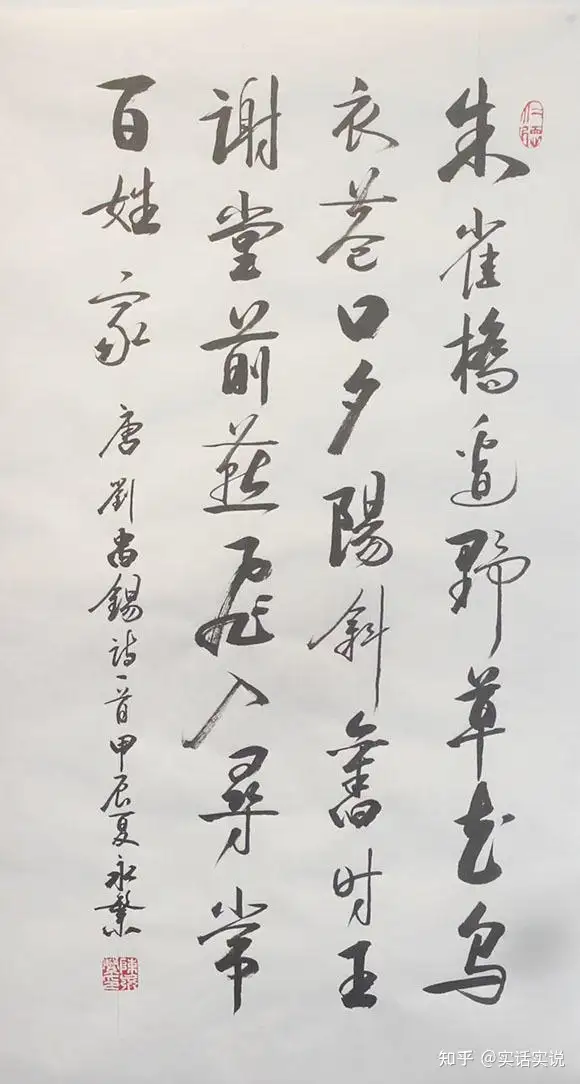 朱雀橋邊野草花烏
衣巷口夕陽斜舊时王
謝堂前燕飛入尋常
百姓家
唐劉禹錫詩一首甲辰夏永繁
知乎 @实话实说